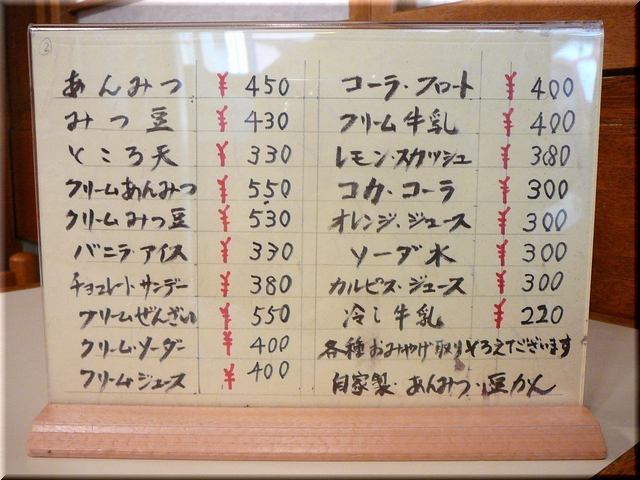 ②
あんみつ ¥ 450
みつ豆 ¥ 430
ところ天 ¥ 330
クリームあんみつ ¥ 550
クリームみつ豆 ¥ 530
バニラ・アイス ¥ 330
チョコレート・サンデー ¥ 380
クリームぜんざい ¥ 550
クリーム・ソーダー ¥ 400
クリームジュース ¥ 400
コーラ・フロート ¥ 400
クリーム牛乳 ¥ 400
レモン・スカッシュ ¥ 380
コカ・コーラ ¥ 300
オレンジ・ジュース ¥ 300
ソーダ水 ¥ 300
カルピス・ジュース ¥ 300
冷し牛乳 ¥ 220
各種おみやげ取りそろえてございます
自家製・あんみつ・豆かん